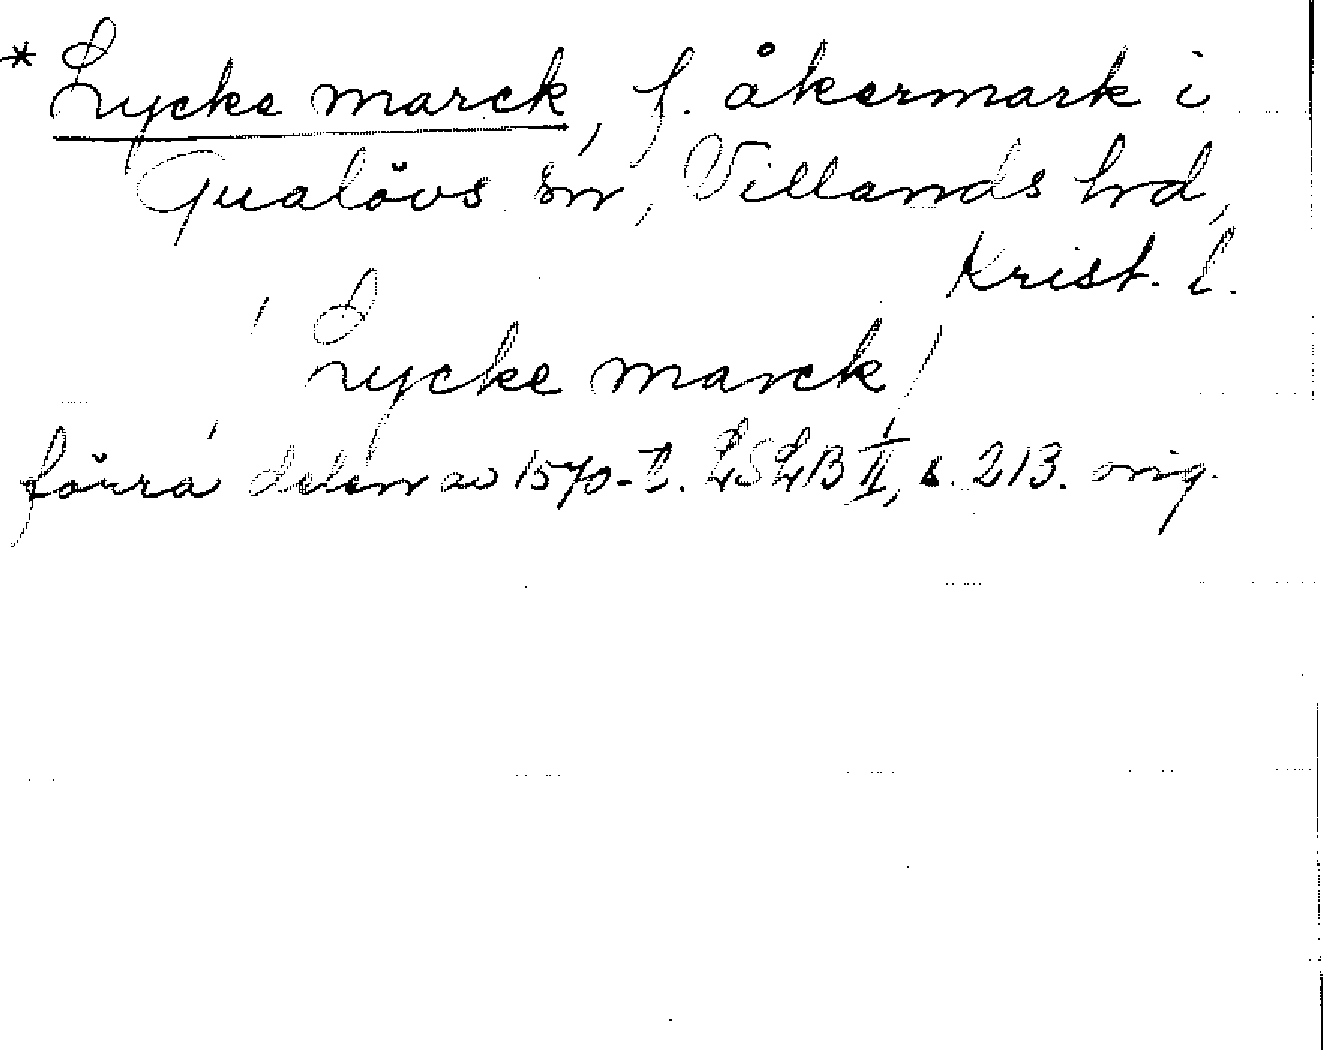 * Lycke marck, f. åkermark i
Gualövs sn, Villands hd,
Krist. l.
Lycke marck
förra delen av 1570-t. LSLB II, s. 213. orig.